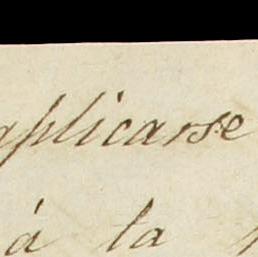 aplicarse
á la